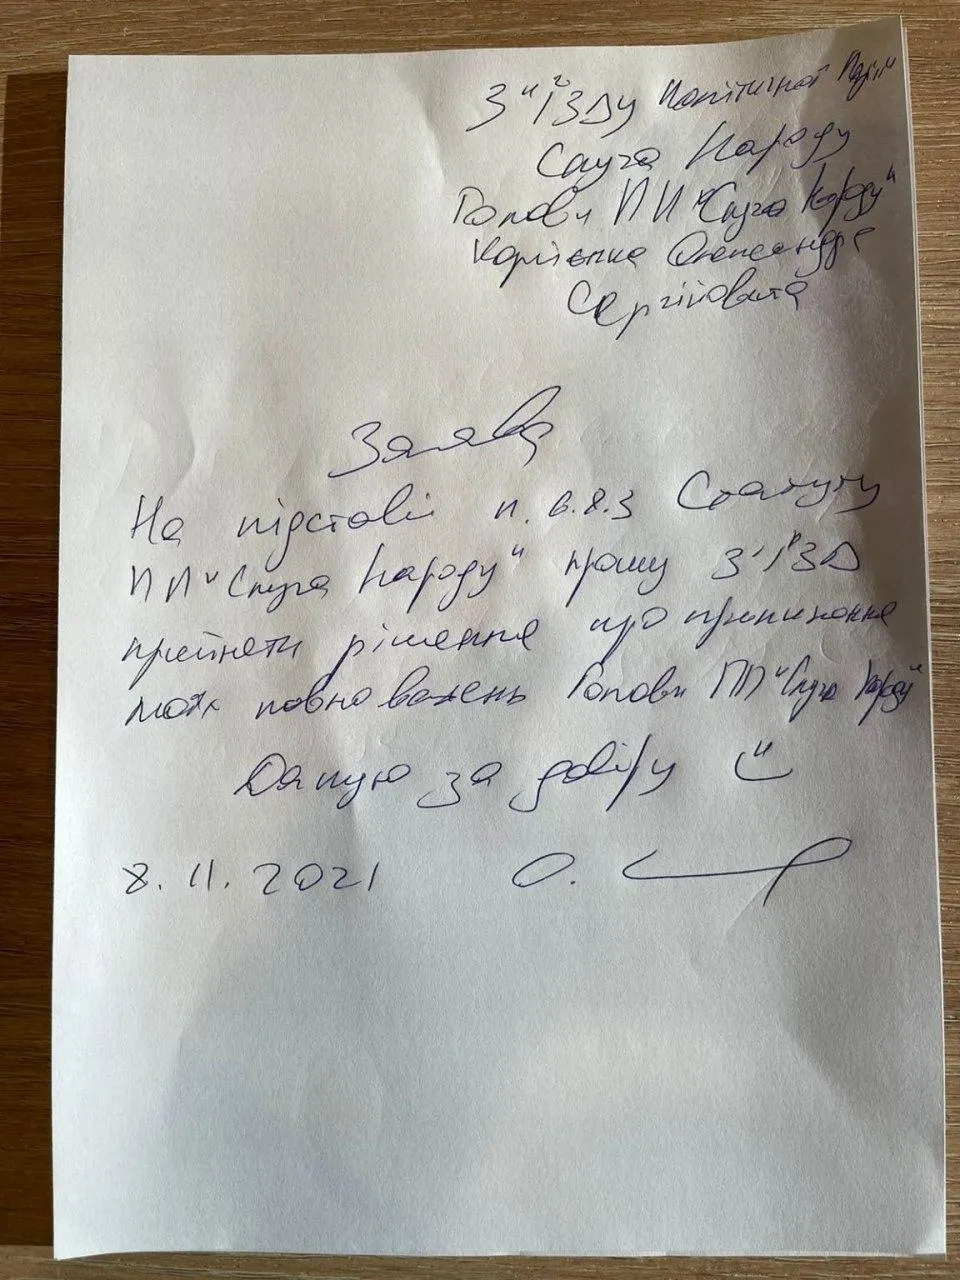 З"їЗДУ Політичної Партії
Слуга Народу
Голови ПП "Слуга Народу"
Корнієнка Олександра
Сергійовича
Заява
На підставі п. 6.8.3 Статуту
ПП "Слуга Народу" прошу З'їЗД
прийняти рішення про припинення
моїх повноважень Голови ПП "Слуга Народу"
Дякую за довіру
8.11.2021 О.